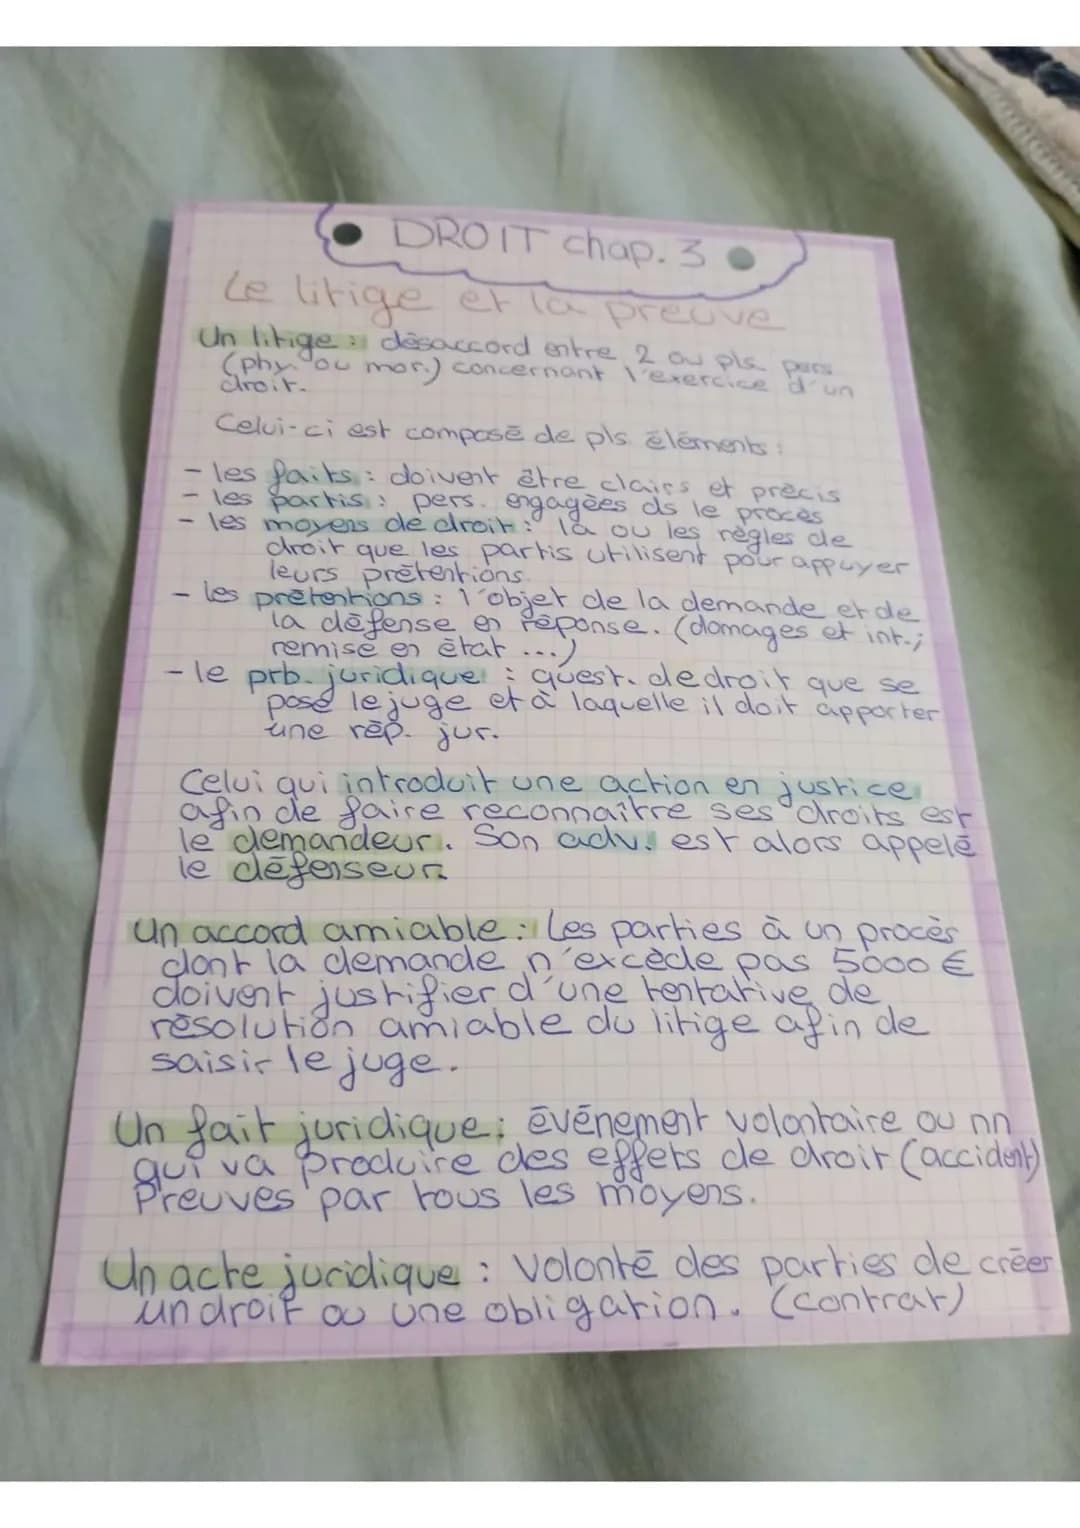 DROIT chap. 3
Le litige et la preuve
Un litige : désaccord entre 2 ou pls pers
(phy. ou mor.) concernant l'exercice d'un
droit.
Celui-ci est composé de pls éléments :
- les faits : doivent être clairs et précis
- les partis : pers. engagées ds le procès
- les moyens de droit : la ou les règles de
droit que les partis utilisent pour appuyer
leurs prétentions.
- les prétentions : l'objet de la demande et de
la défense en réponse. (domages et int.;
remise en état ...)
- le prb. juridique : quest. de droit que se
pose le juge et à laquelle il doit apporter
une rép. jur.
Celui qui introduit une action en justice
afin de faire reconnaître ses droits est
le demandeur. Son adv. est alors appelé
le défenseur.
Un accord amiable : Les parties à un procès
dont la demande n'excède pas 5000 €
doivent justifier d'une tentative de
résolution amiable du litige afin de
saisir le juge.
Un fait juridique : événement volontaire ou nn
qui va produire des effets de droit (accident)
Preuves par tous les moyens.
Un acte juridique : Volonté des parties de créer
un droit ou une obligation. (contrat)